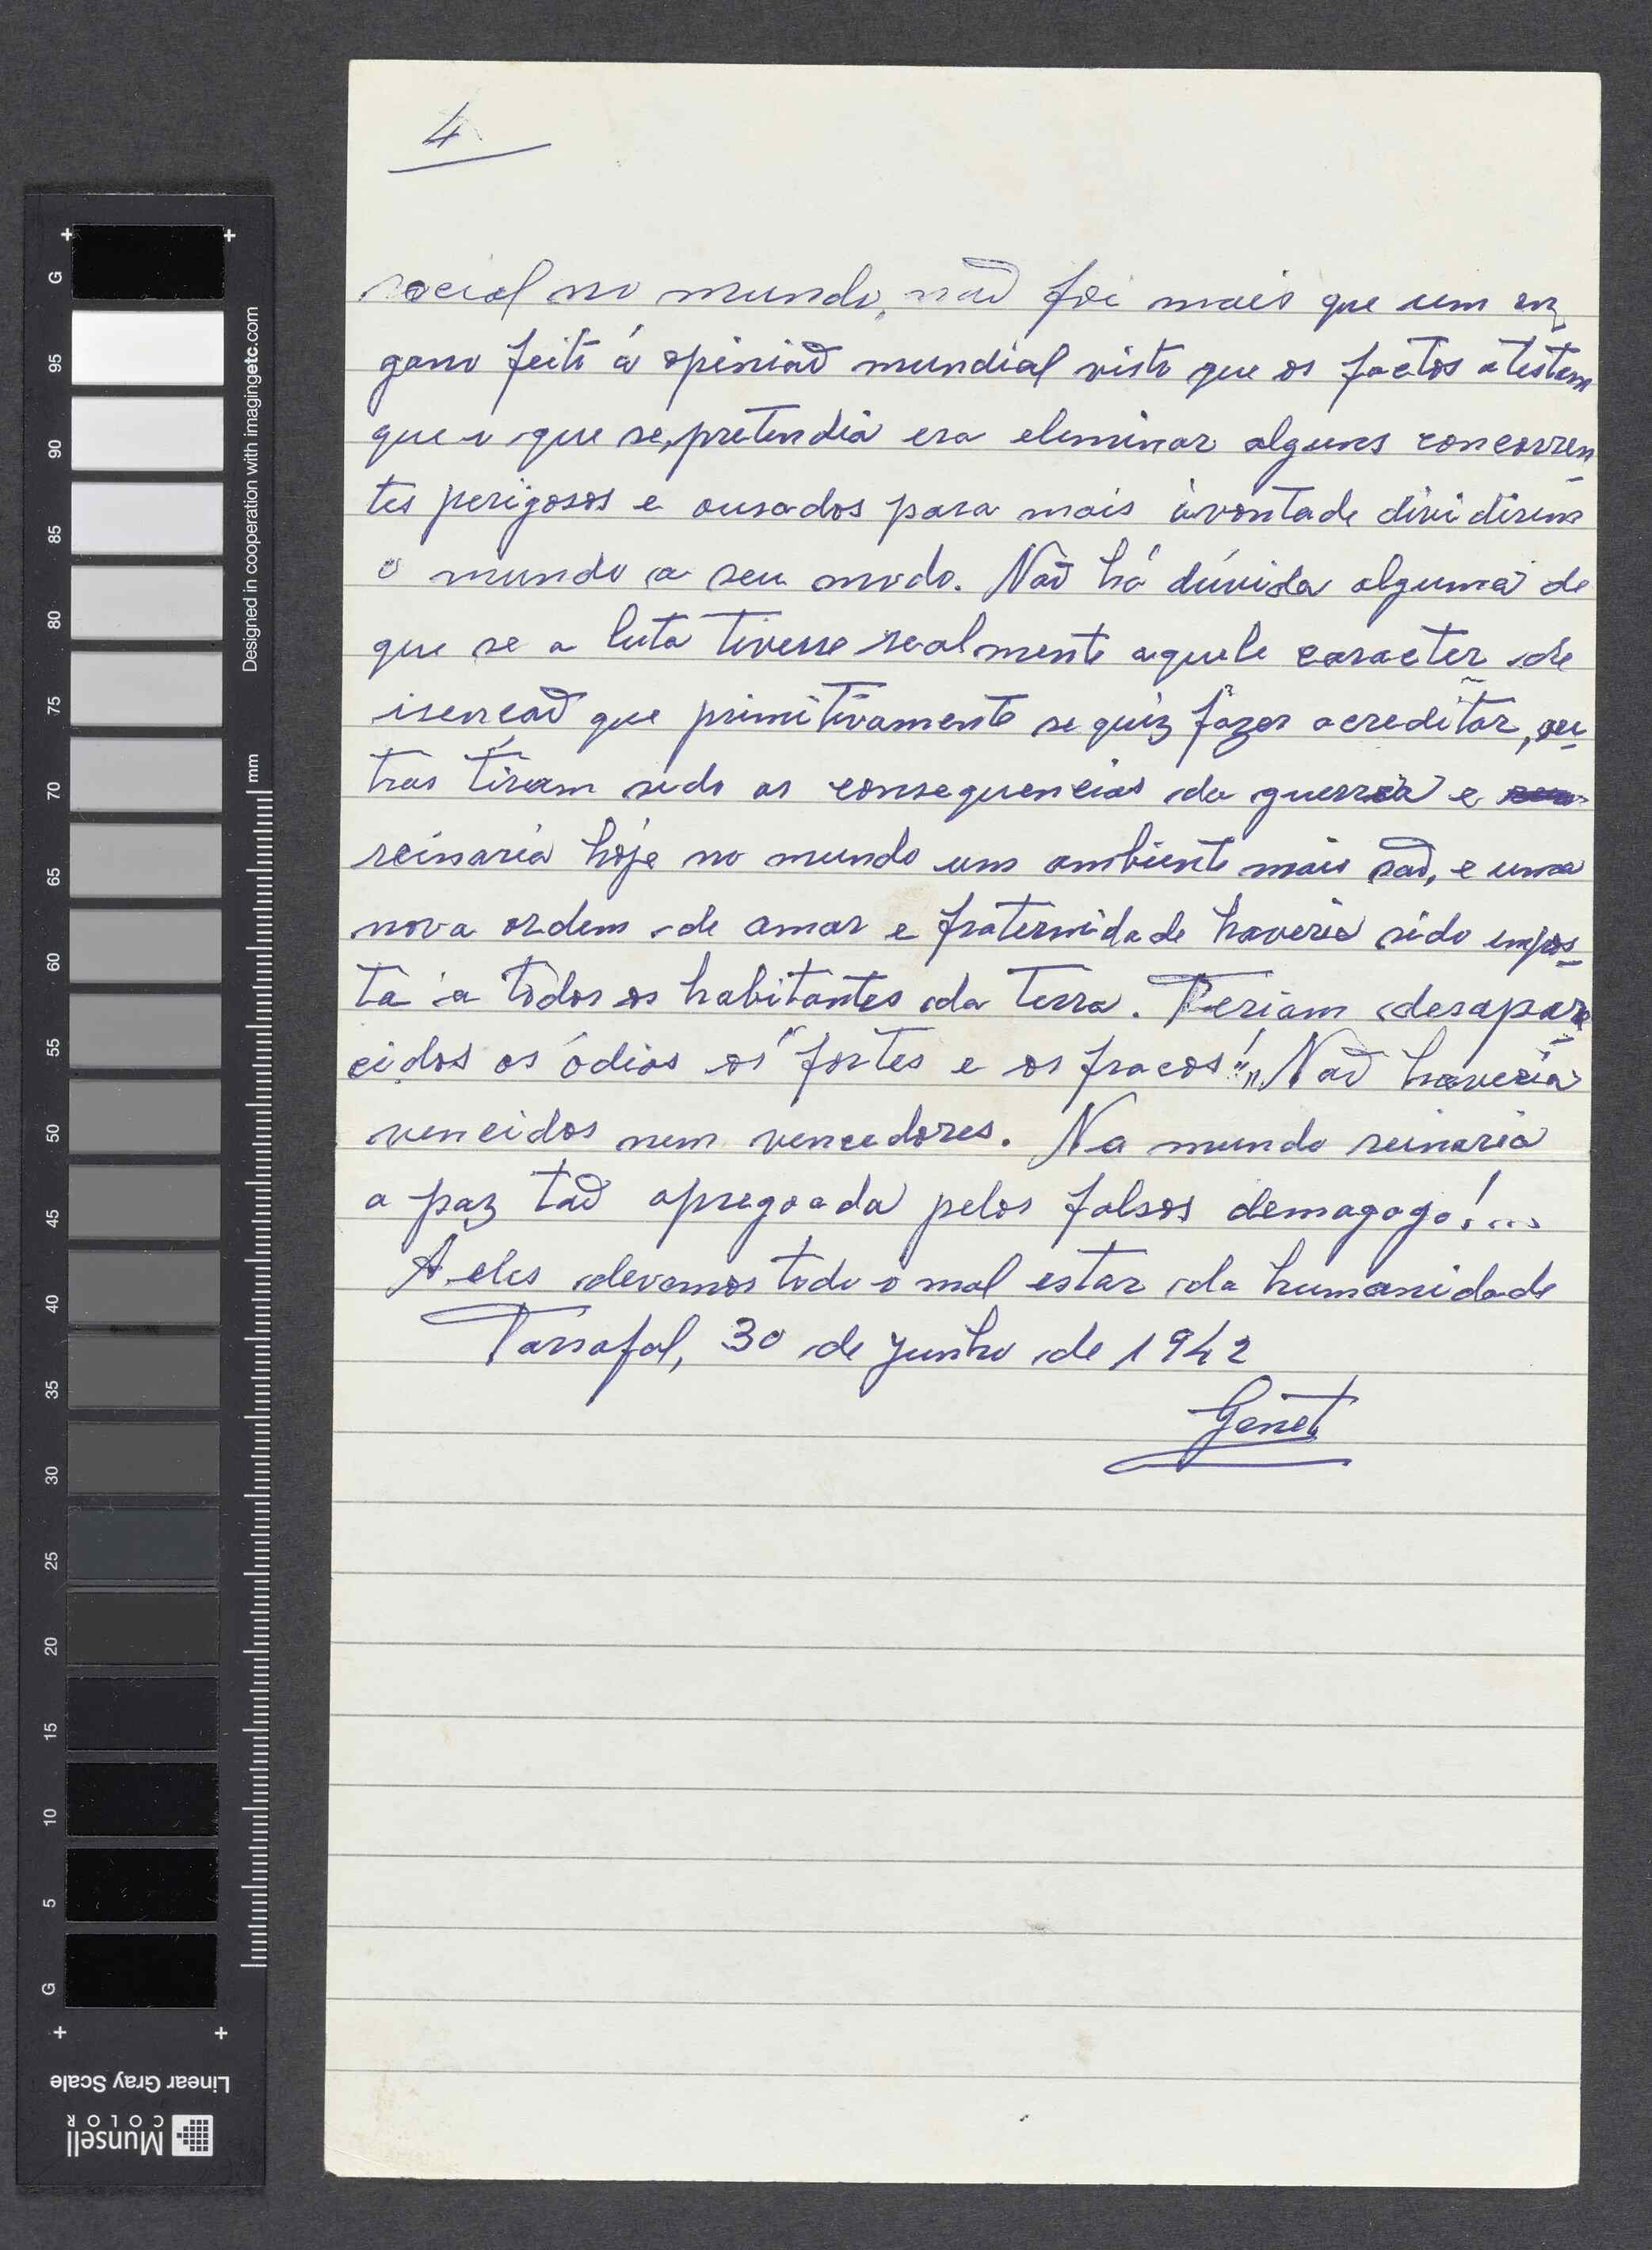 4
social no mundo, não foi mais que um en-
gano feito á opinião mundial visto que os factos atestam
que o que se pretendia era eleminar alguns concorren-
tes perigosos e ousados para mais àvontade dividirem
o mundo a seu modo. Não há dúvida alguma de
que se a luta tivesse realmente aquele caracter de
isencão que primitivamente se quiz fazer acreditar, ou-
tras tiriam sido as consequencias da guerra e
reinaria hoje no mundo um ambiente mais são, e uma
nova ordem de amor e fraternidade haveria sido impos-
ta a todos os habitantes da Terra. Teriam desapare-
cidos os ódios os "fortes e os fracos!" Não haveria
vencidos nem vencedores. No mundo reinaria
a paz tão apregoada pelos falsos demagogo!...
A eles devemos todo o mal estar da humanidade
Tarrafal, 30 de Junho de 1942
Genet
G
95
90
85
80
75
70
65
60
55
50
45
40
35
30
25
20
15
10
5
G
mm
Designed in cooperation with imagingetc.com
Linear Gray Scale
Munsell
COLOR